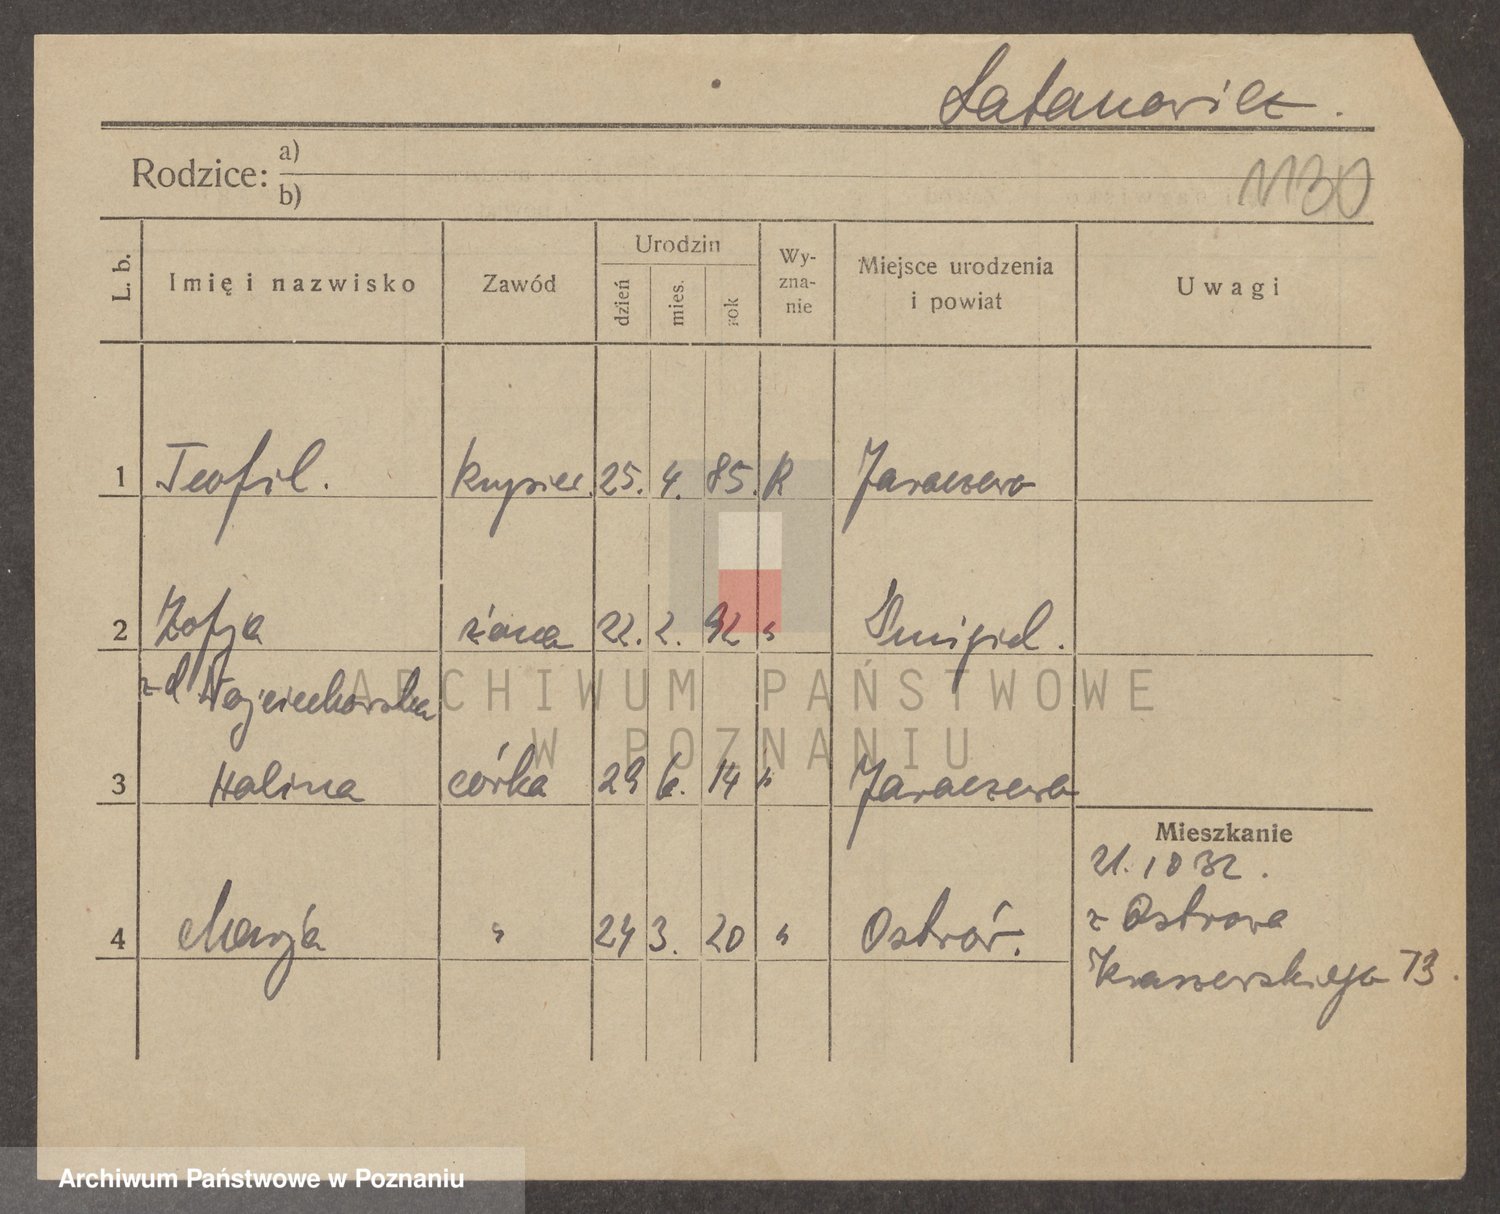 Latanowicz.
Rodzice: a)
b)
1130
L. b. Imię i nazwisko Zawód Urodzin dzień mies. rok Wy-zna-nie Miejsce urodzenia i powiat Uwagi
1 Teofil. kupiec. 25. 4. 85. R Jaraczewo
2 Zofja żona 22. 2. 92 " Śmigiel.
z d. Wojciechowska
3 Halina córka 29 6. 14 " Jaraczewo
Mieszkanie
21. 10 32.
4 Marja " 24 3. 20 " Ostrów.
z Ostrowa
Kraszewskiego 73.
ARCHIWUM PAŃSTWOWE
W POZNANIU
Archiwum Państwowe w Poznaniu